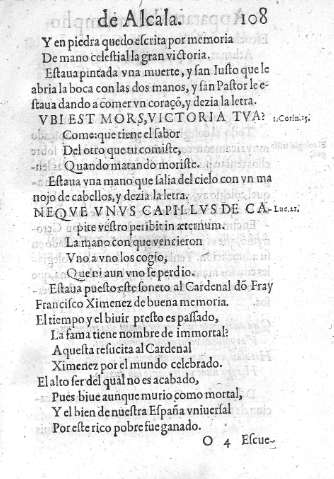 de Alcala. 108
Y en piedra quedo escrita por memoria
De mano celestial la gran victoria.
Estaua pintada vna muerte, y san Iusto que le
abria la boca con las dos manos, y san Pastor le e-
staua dando a comer vn coraçõ, y dezia la letra.
VBI EST MORS, VICTORIA TVA? 1.Corin.15.
Come: que tiene el sabor
Del otro que tu comiste,
Quando matando moriste.
Estaua vna mano que salia del cielo con vn ma
nojo de cabellos, y dezia la letra.
NEQVE VNVS CAPILLVS DE CA- Luc.21.
pite vestro peribit in æternum.
La mano con que vencieron
Vno a vno los cogio,
Que ni aun vno se perdio.
Estaua puesto este soneto al Cardenal dõ Fray
Francisco Ximenez de buena memoria.
El tiempo y el biuir presto es passado,
La fama tiene nombre de immortal?
Aquesta resucita al Cardenal
Ximenez por el mundo celebrado.
El alto ser del qual no es acabado,
Pues biue aunque murio como mortal,
Y el bien de nuestra España vniuersal
Por este rico pobre fue ganado.
O 4 Escue-